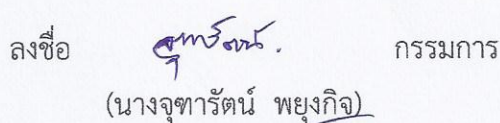 ลงชื่อ จุฑารัตน์. กรรมการ
(นางจุฑารัตน์ พยุงกิจ)